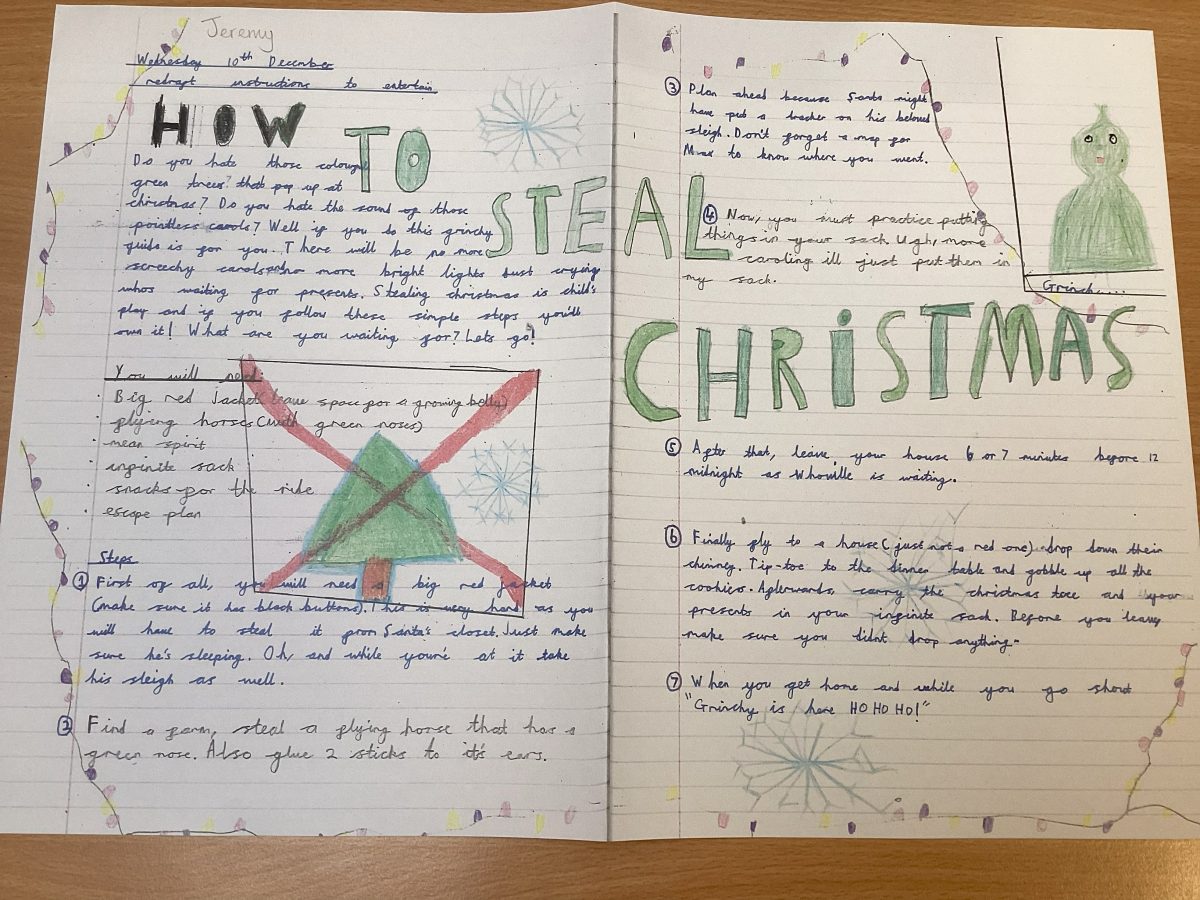 Jeremy
Wednesday 10th December
redraft instructions to entertain
HOW TO STEAL CHRISTMAS
Do you hate those coloured
green trees? that pop up at
christmas? Do you hate the sound of those
pointless carols? Well if you do this grinchy
guide is for you. There will be no more
screechy carols and no more bright lights Just crying
whos waiting for presents. Stealing christmas is child's
play and if you follow these simple steps you'll
own it! What are you waiting for? Lets go!
You will need:
· Big red Jacket (leave space for a growing belly)
· flying horses (with green noses)
· mean spirit
· infinite sack
· snacks for the ride
· escape plan
Steps
① First of all, you will need a big red jacket
(make sure it has black buttons). This is very hard as you
will have to steal it from Santa's closet. Just make
sure he's sleeping. Oh and while youre at it take
his sleigh as well.
② Find a farm, steal a flying horse that has a
green nose. Also glue 2 sticks to it's ears.
③ Plan ahead because Santa might
have put a tracker on his beloved
sleigh. Don't forget a map for
Max to know where you went.
④ Now, you must practice putting
things in your sack. Ugh, more
caroling ill just put them in
my sack.
Grinch....
⑤ After that, leave your house 6 or 7 minutes before 12
midnight as Whoville is waiting.
⑥ Finally fly to a house (just not a red one) drop down their
chimney. Tip-toe to the dinner table and gobble up all the
cookies. Afterwards, carry the christmas tree and your
presents in your infinite sack. Before you leave
make sure you didnt drop anything.
⑦ When you get home and while you go shout
"Grinchy is here HO HO HO!"